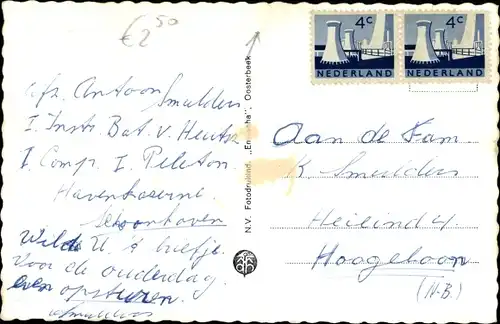 €2 50
afz. Antoon Smulders
I. Instr. Bat. v. Heutsz
I Comp. I. Peleton.
Havenkazerne.
Schoonhoven
Wilde U 't briefje
voor de ouderdag
even opsturen.
Smulders
N.V. Fotodrukind. „ Oosterbeek
4c
NEDERLAND
4c
NEDERLAND
Aan de Fam.
K Smulders
Heileind 4.
Hoogeloon
(N-B.)